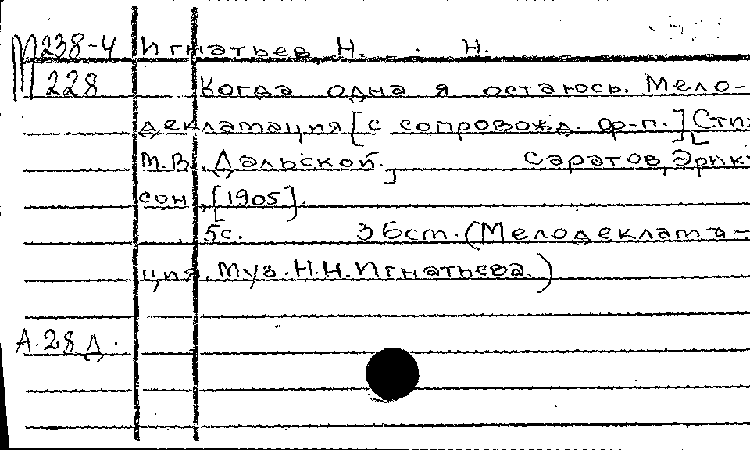 М238-4 Игнатьев, Н. Н.
228 Когда одна я остаюсь. Мело-
декламация [с сопровожд. ф-п.] Сти
М.В. Дальской.] Саратов, Эрик
сон, [1905].
5с. 3бст. (Мелодеклата-
ция. Муз. Н.Н. Игнатьева.)
А.28 д.